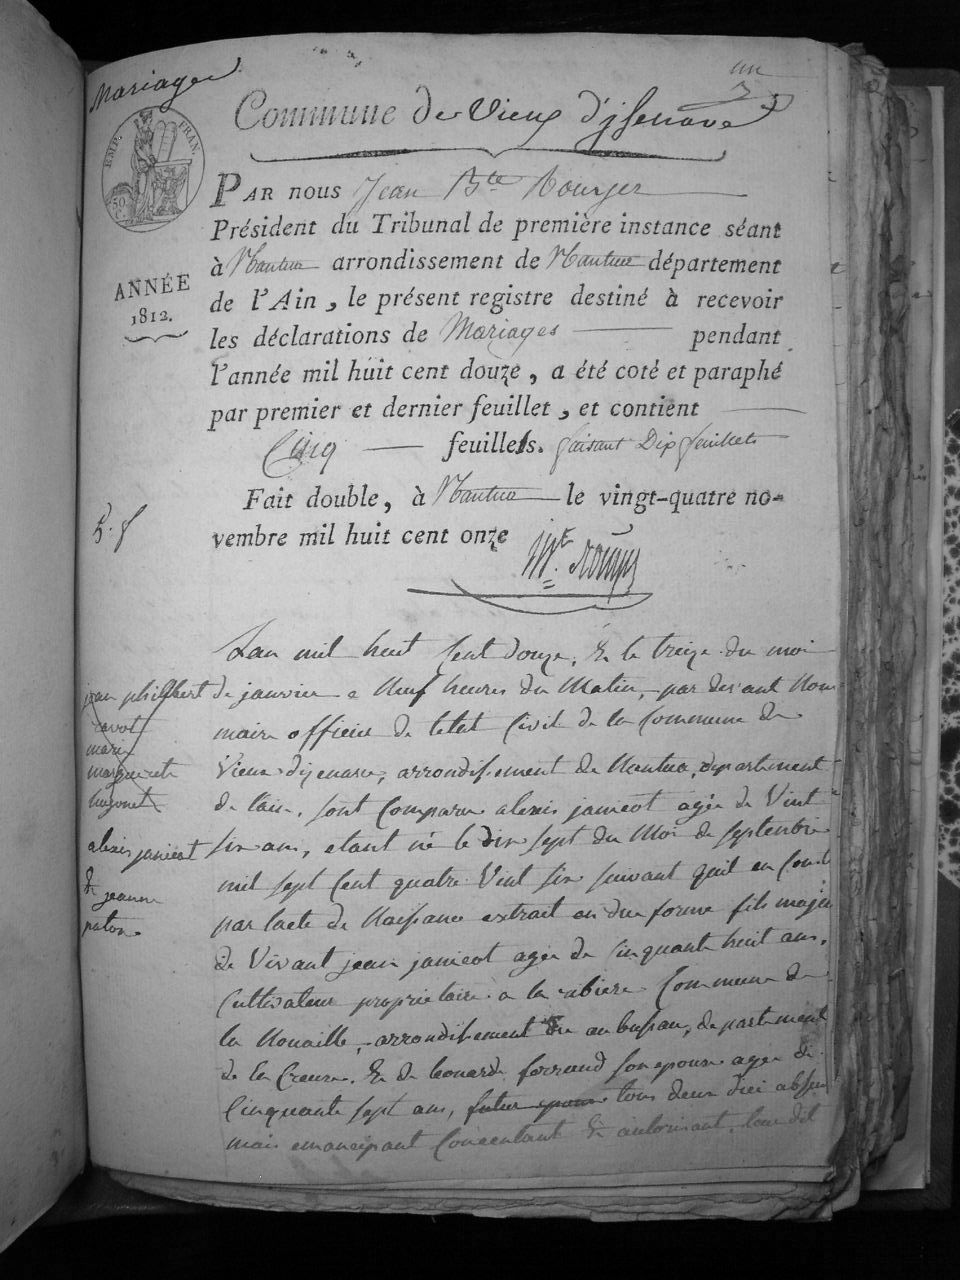 Mariages
un
Commune de Vieux d'jsenave
EMP. FRAN.
50 C.
PAR nous Jean Bte Rouyer
Président du Tribunal de première instance séant
à Nantua arrondissement de Nantua département
ANNÉE
1812.
de l'Ain, le présent registre destiné à recevoir
les déclarations de Mariages pendant
l'année mil huit cent douze, a été coté et paraphé
par premier et dernier feuillet, et contient
Cinq feuillets. faisant Dix feuillets
Fait double, à Nantua le vingt-quatre no-
vembre mil huit cent onze
5. f
Lan mil huit Cent douze, & le treize du moi
jean philibert
marie
marguerite
hugonet
alexis janicot
& jeanne
paton
de janvier a Neuf heures du Matin, par devant Nous
maire officier de letat Civil de la Commune de
Vieux dijenave, arrondissement de Nantua, departement
de lain, sont Comparu alexis janicot agée de Vint
six ans, etant né le dix sept du Moi de septembre
mil sept Cent quatre Vint six suivant quil en Conste
par lacte de Naissance extrait en due forme fils majeur
de Vivant jean janicot agée de Cinquante huit ans,
Cultivateur proprietaire a la Commune de
la Nouaille, arrondissement de aubusau, departement
de la Creuse, & de leonarde ferrand son epouse agée de
Cinquante sept ans, tous deux dici absent
mais emancipant Concentant & autorisant leur dit